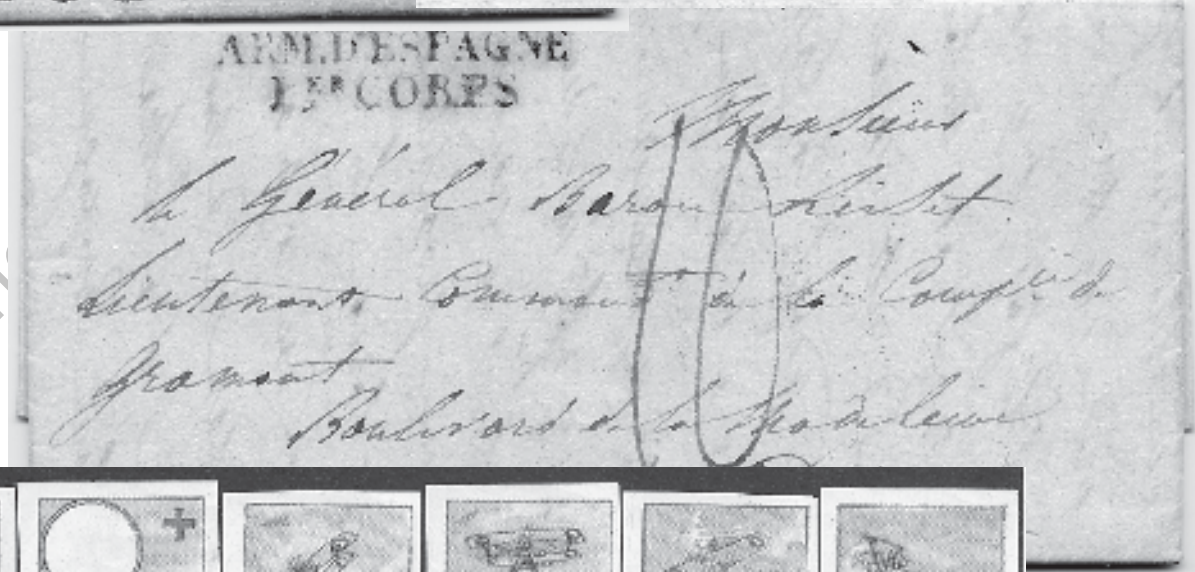 ARM. D'ESPAGNE
1ER CORPS
Monsieur
le Général Baron
Lieutenant Command^t à la Comp^nie de
Gramont
Boulevard de la Madeleine
10